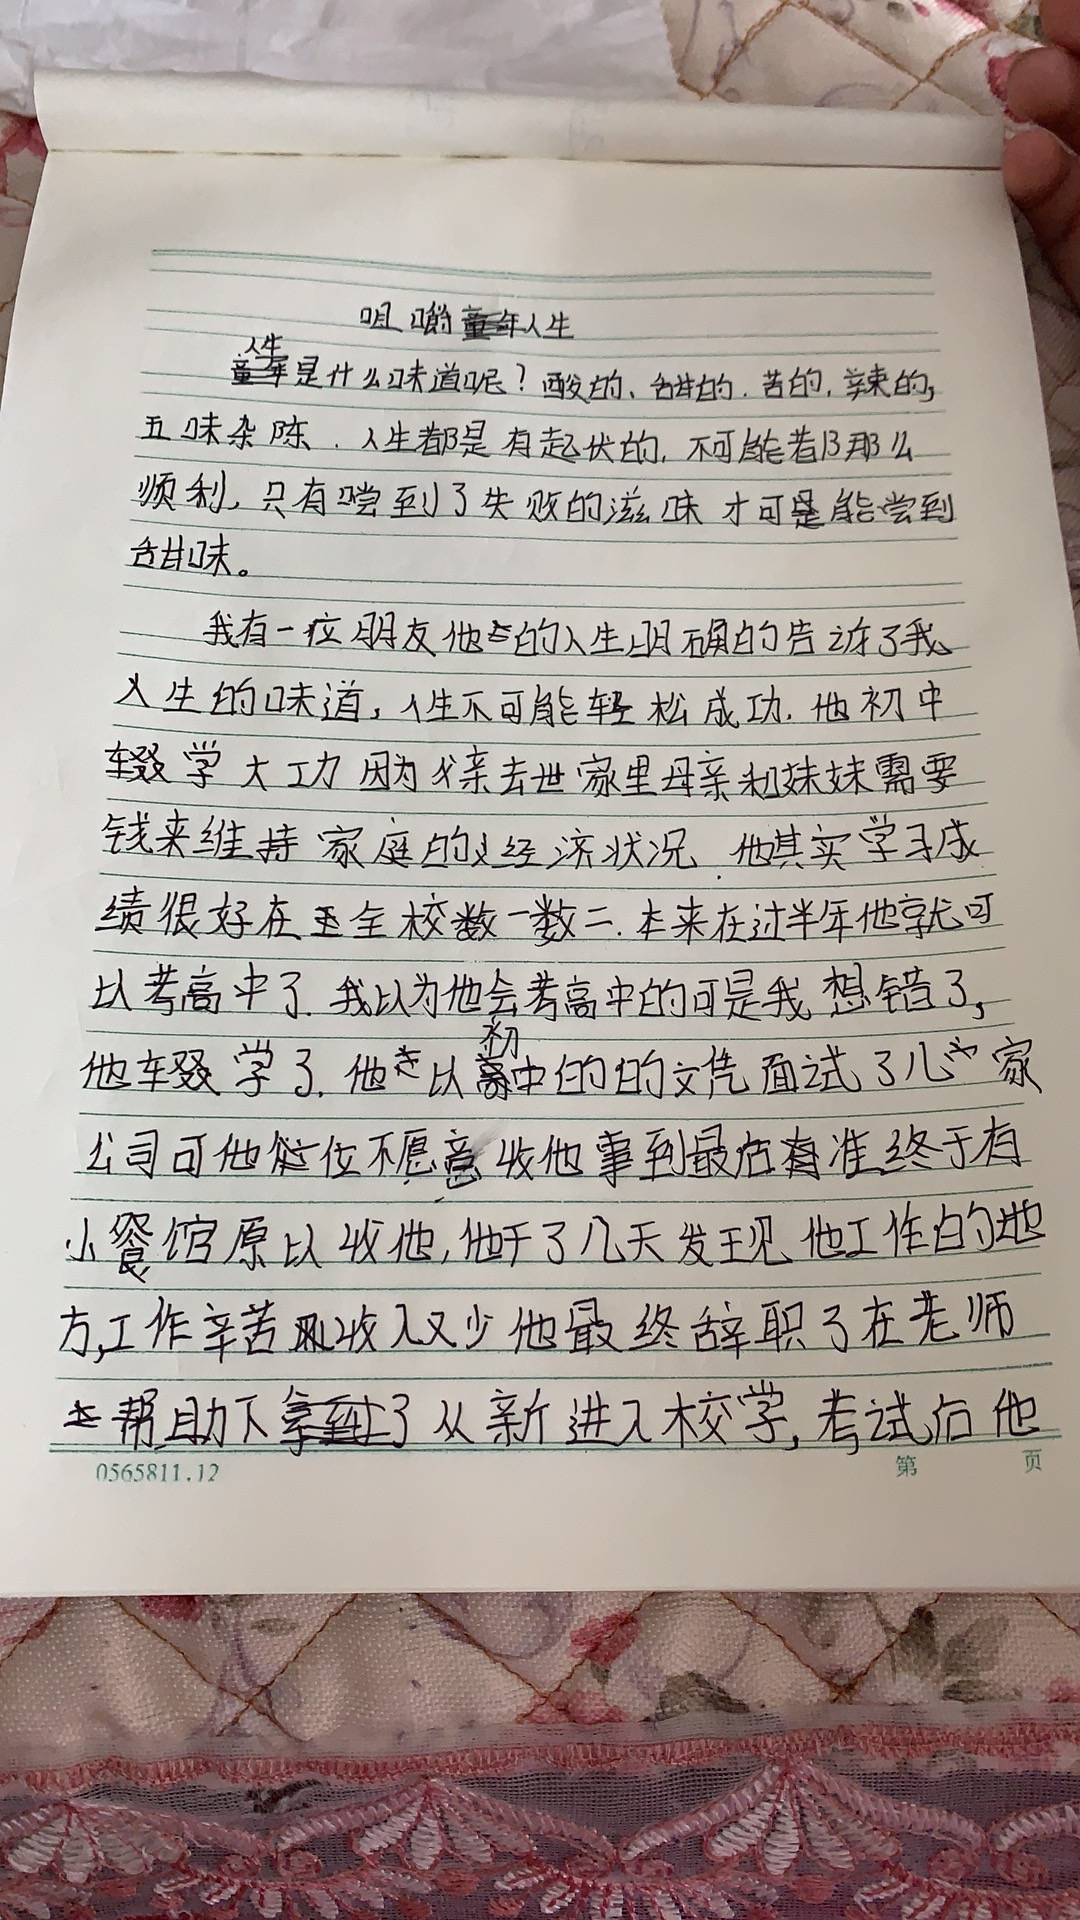 咀嚼人生
人生是什么味道呢？酸的、甜的.苦的,辣的,
五味杂陈.人生都是有起伏的,不可能都那么
顺利,只有嚐到了失败的滋味才可能尝到
甜味。
我有一位朋友他的人生明确的告诉了我
人生的味道,人生不可能轻松成功.他初中
辍学大工功因为父亲去世家里母亲和妹妹需要
钱来维持家庭的经济状况.他其实学习成
绩很好在全校数一数二.本来在过半年他就可
以考高中了.我以为他会考高中的可是我想错了,
他辍学了.他以初中的的文凭面试了几家
公司可他位不愿意收他事到最后准终于有
小餐馆原以收他,他干了几天发现他工作的地
方,工作辛苦收入又少他最终辞职了在老师
帮助下了从新进入校学,考试后他
0565811.12
第 页